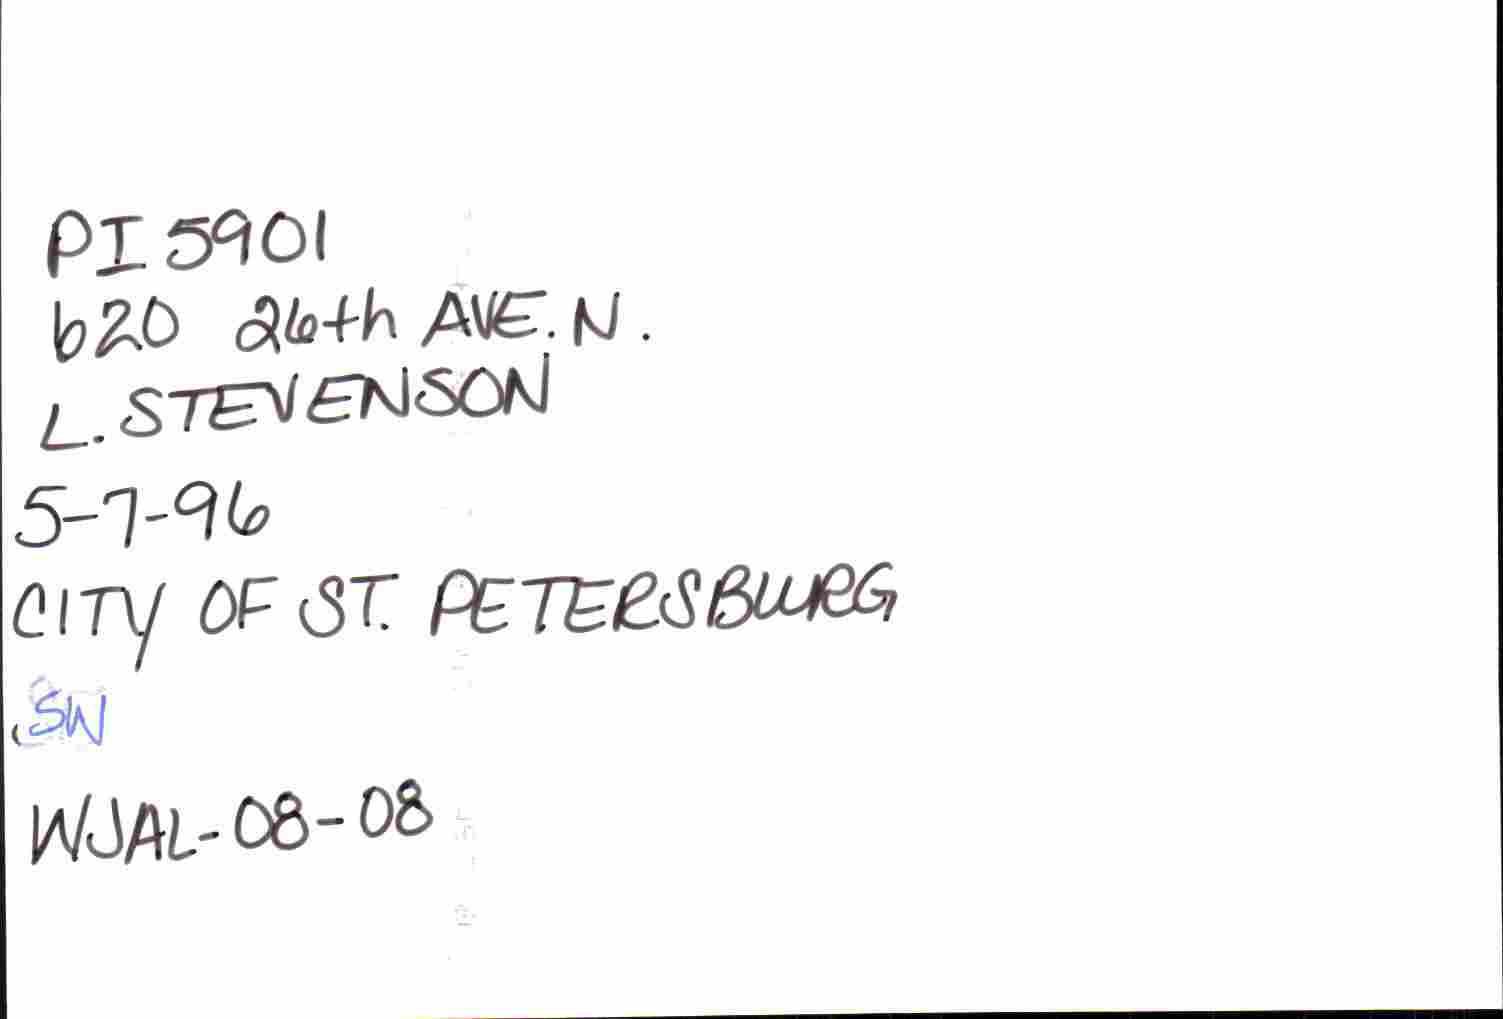 PI 5901
620 26th AVE. N.
L. STEVENSON
5-7-96
CITY OF ST. PETERSBURG
SW
WJAL-08-08